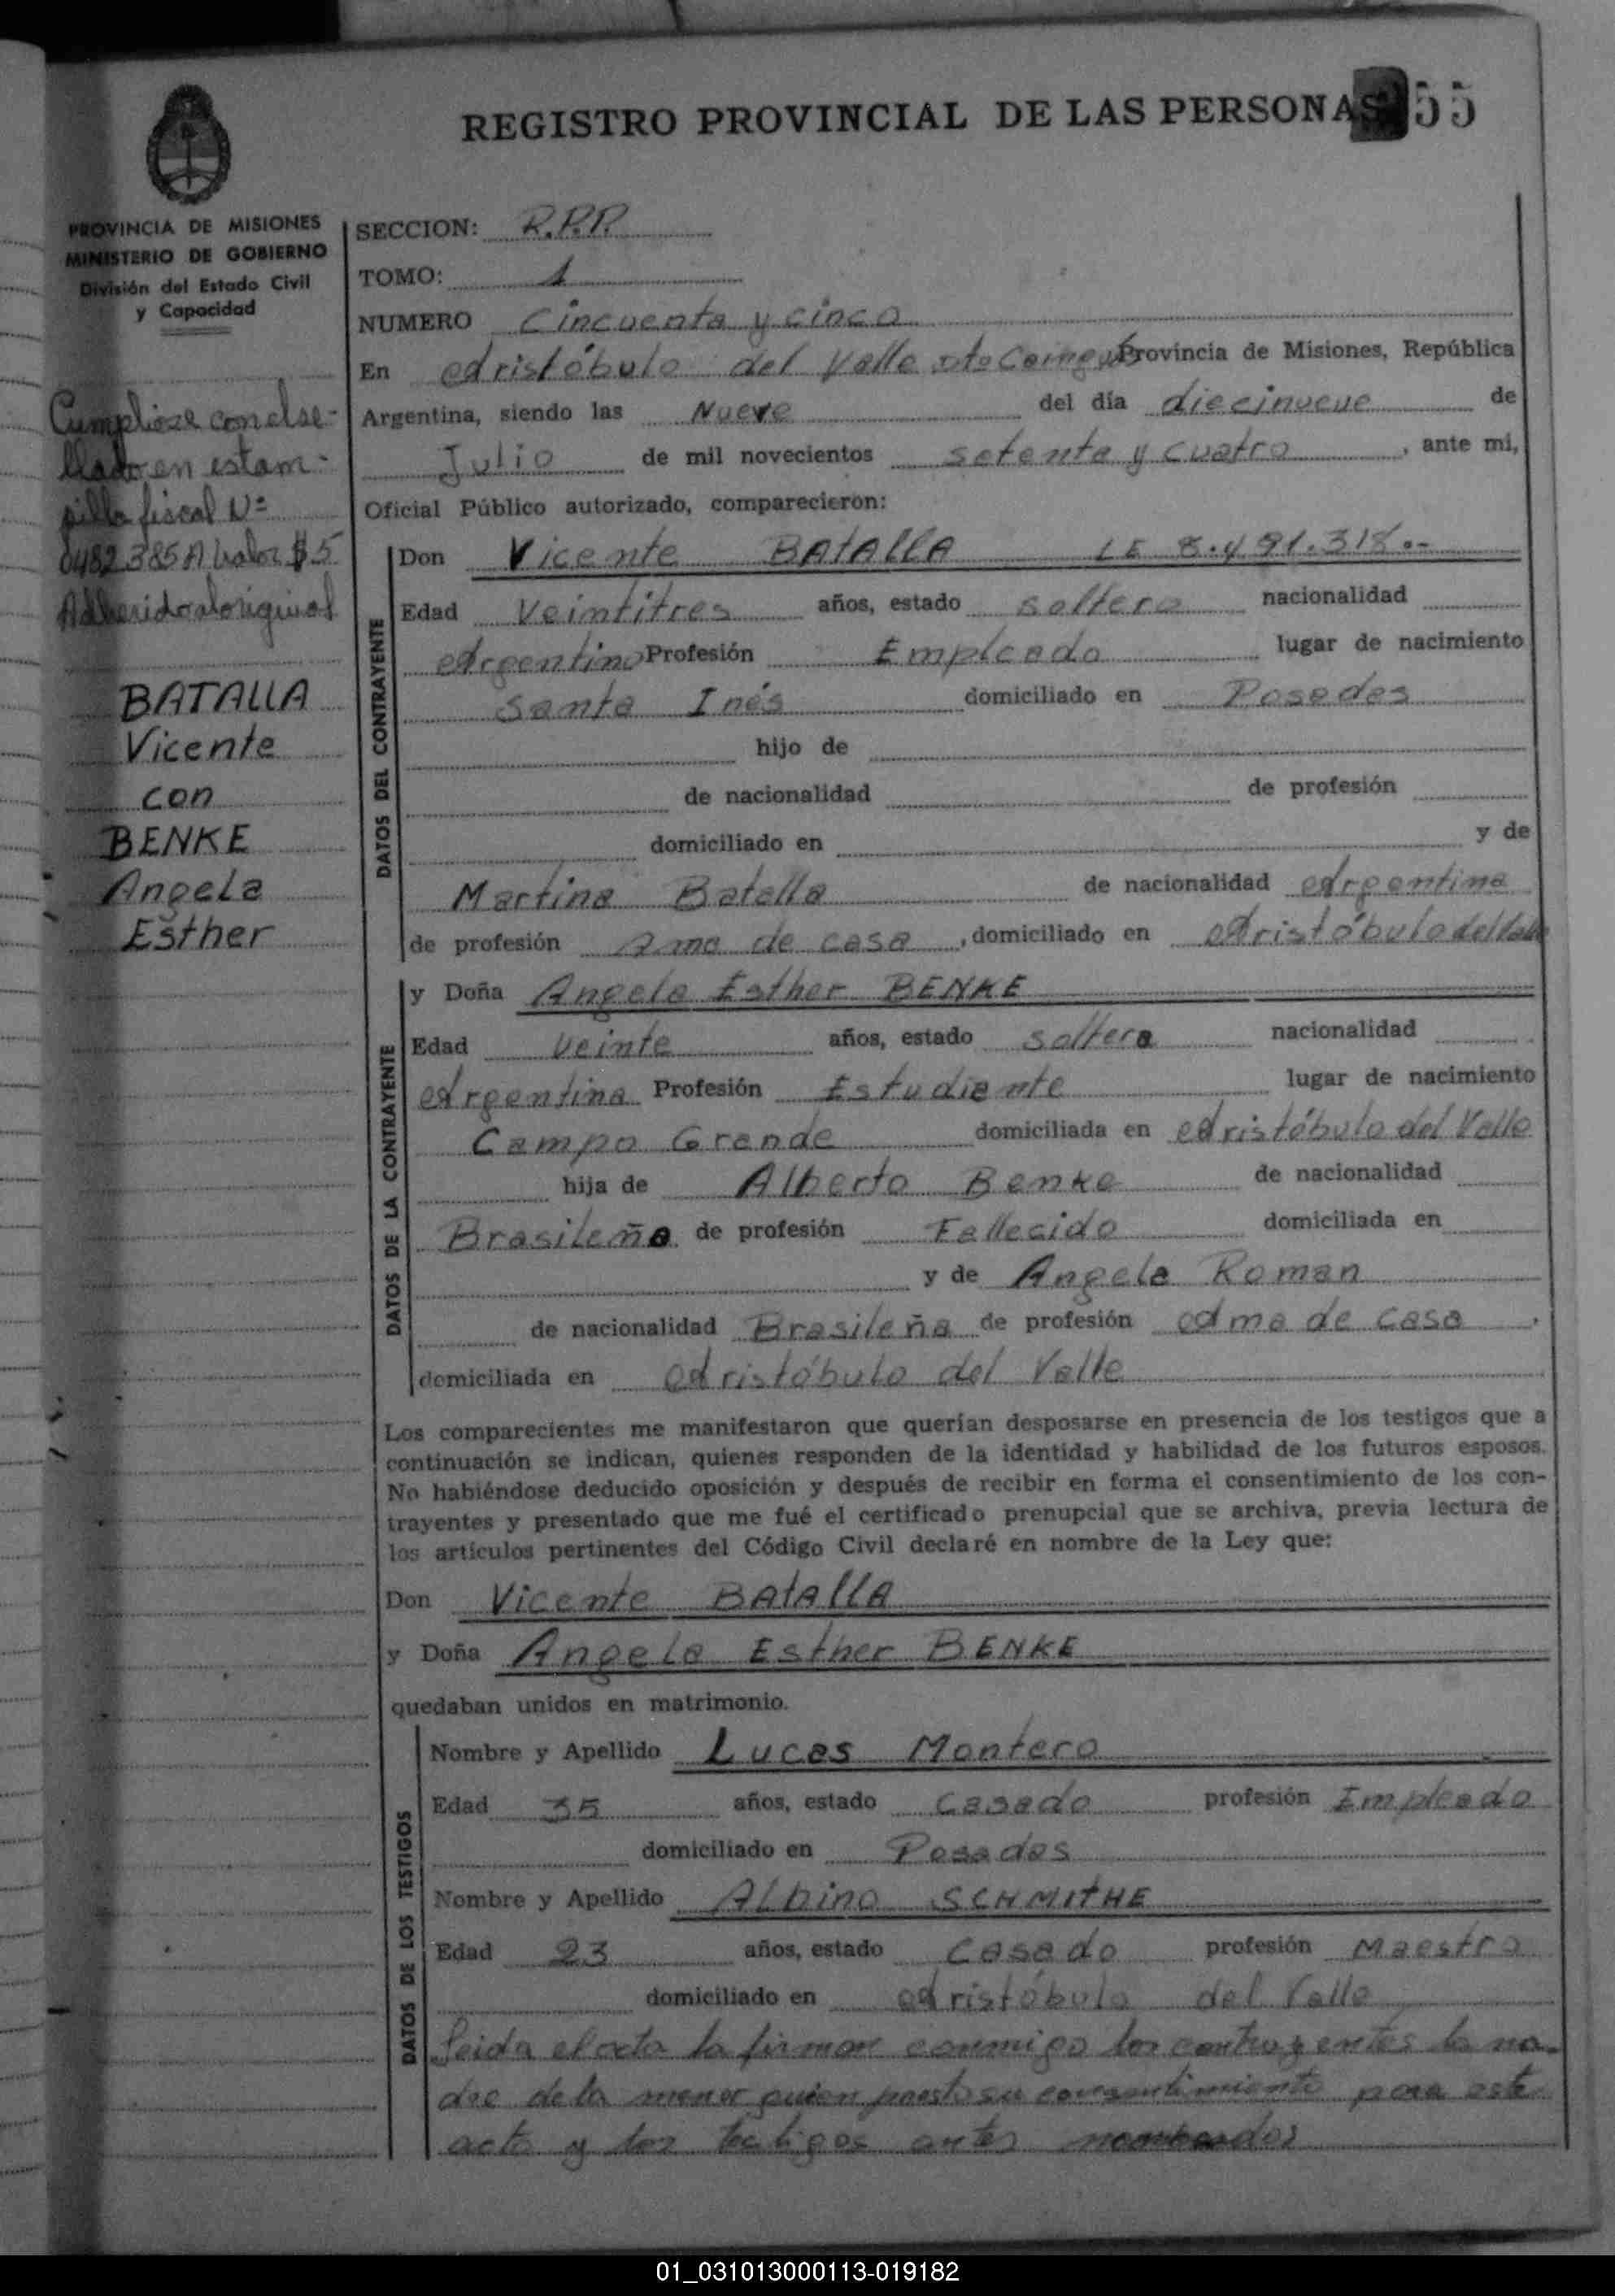 REGISTRO PROVINCIAL DE LAS PERSONAS 55
PROVINCIA DE MISIONES
MINISTERIO DE GOBIERNO
División del Estado Civil
y Capacidad
Cumpliose con el se-
llado en estam-
pilla fiscal Nº
0482385 A valor $5
Adherido al original
BATALLA
Vicente
con
BENKE
Angela
Esther
SECCION: R.P.P.
TOMO: 1
NUMERO Cincuenta y cinco
En Aristóbulo del Valle Dto Cainguás Provincia de Misiones, República
Argentina, siendo las Nueve del día diecinueve de
Julio de mil novecientos setenta y cuatro, ante mi,
Oficial Público autorizado, comparecieron:
DATOS DEL CONTRAYENTE
Don Vicente BATALLA LE 8.491.318.-
Edad Veintitres años, estado soltero nacionalidad
Argentino Profesión Empleado lugar de nacimiento
Santa Inés domiciliado en Posadas
hijo de
de nacionalidad de profesión
domiciliado en y de
Martina Batalla de nacionalidad Argentina
de profesión Ama de casa, domiciliado en Aristóbulo del Valle
DATOS DE LA CONTRAYENTE
y Doña Angela Esther BENKE
Edad Veinte años, estado soltera nacionalidad
Argentina Profesión Estudiante lugar de nacimiento
Campo Grande domiciliada en Aristóbulo del Valle
hija de Alberto Benke de nacionalidad
Brasileña de profesión Fallecido domiciliada en
y de Angela Roman
de nacionalidad Brasileña de profesión Ama de casa,
domiciliada en Aristóbulo del Valle
Los comparecientes me manifestaron que querían desposarse en presencia de los testigos que a
continuación se indican, quienes responden de la identidad y habilidad de los futuros esposos.
No habiéndose deducido oposición y después de recibir en forma el consentimiento de los con-
trayentes y presentado que me fué el certificado prenupcial que se archiva, previa lectura de
los artículos pertinentes del Código Civil declaré en nombre de la Ley que:
Don Vicente BATALLA
y Doña Angela Esther BENKE
quedaban unidos en matrimonio.
DATOS DE LOS TESTIGOS
Nombre y Apellido Lucas Montero
Edad 35 años, estado Casado profesión Empleado
domiciliado en Posadas
Nombre y Apellido Albino SCHMITHE
Edad 23 años, estado Casado profesión Maestro
domiciliado en Aristóbulo del Valle
Leida el acta la firman conmigo los contrayentes la ma-
dre de la menor quien presto su consentimiento para este
acto y los testigos antes nombrados
01_031013000113-019182